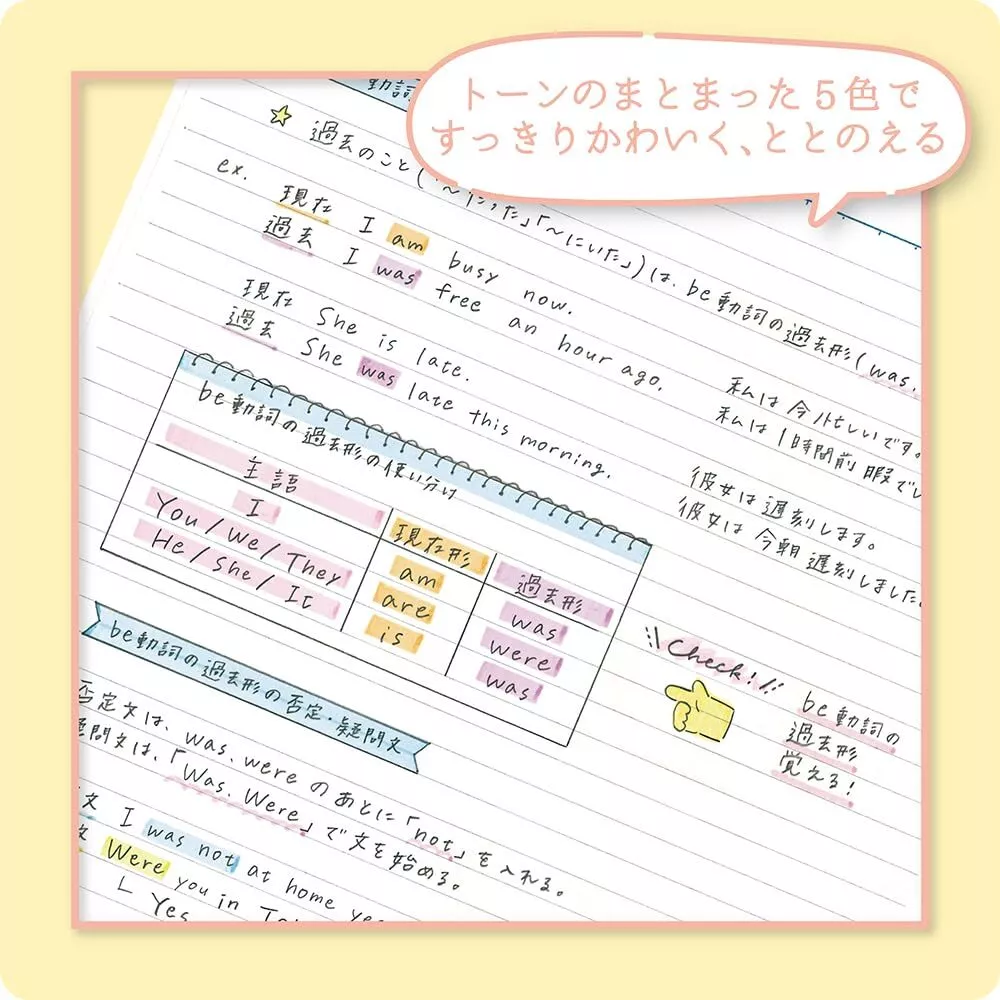 トーンのまとまった5色で
すっきりかわいく、ととのえる
動詞
過去のこと(「〜だった」「〜にいた」)は、be動詞の過去形(was,
ex.
現在 I am busy now.
私は今忙しいです。
過去 I was free an hour ago.
私は1時間前暇でし
現在 She is late.
彼女は遅刻します。
過去 She was late this morning.
彼女は今朝遅刻しました。
be動詞の過去形の使い分け
主語 現在形 過去形
I am was
You/We/They are were
He/She/It is was
Check!
be動詞の
過去形
覚える!
be動詞の過去形の否定・疑問文
否定文は、was, were のあとに「not」を入れる。
疑問文は、「Was, Were」で文を始める。
文 I was not at home ye
文 Were you in To
Yes